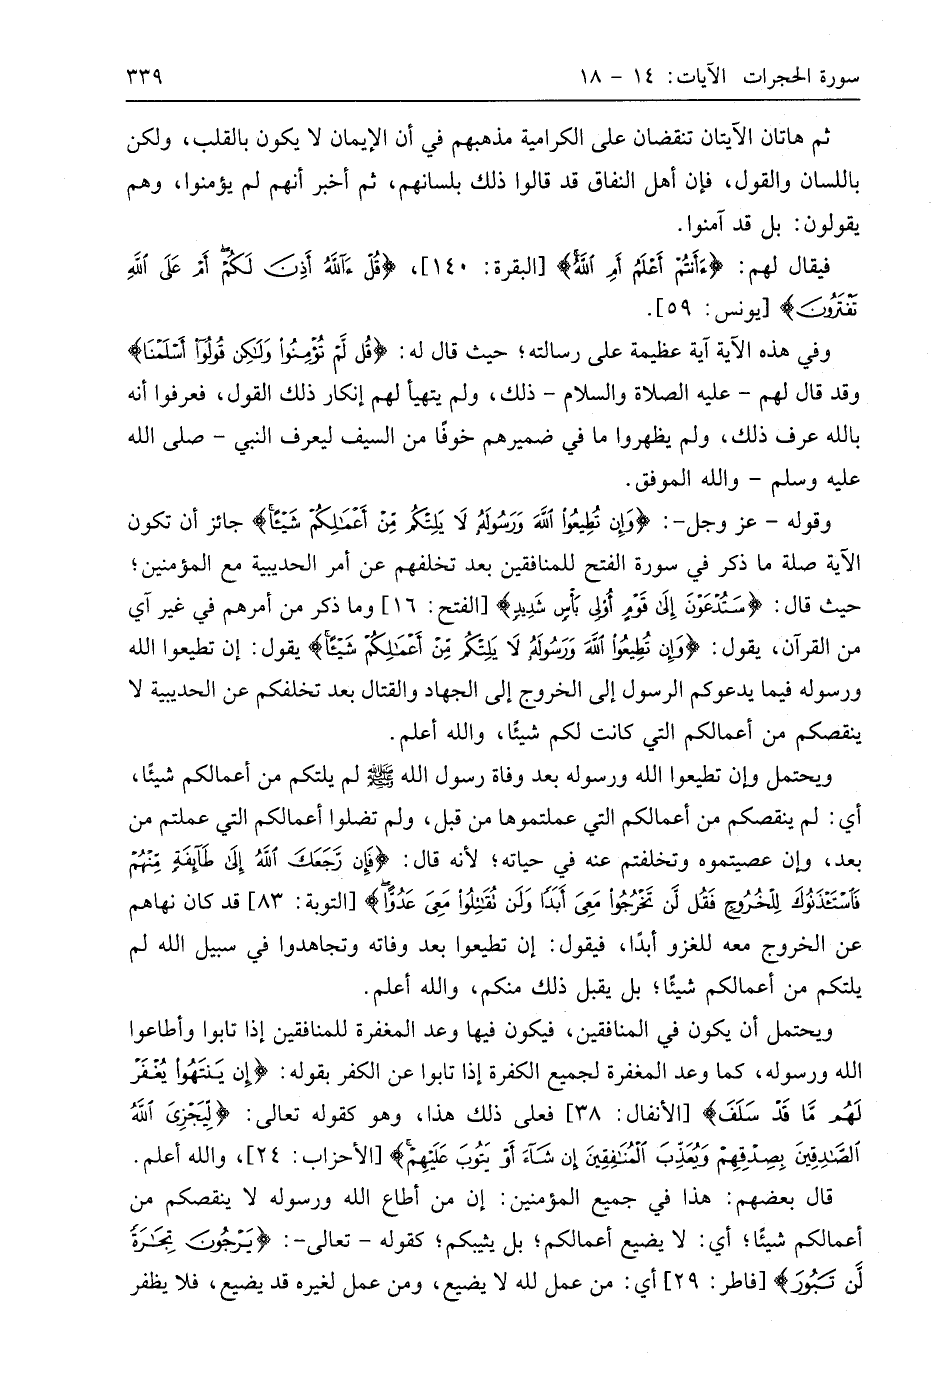 سورة الحجرات الآيات: ١٤ - ١٨ ٣٣٩
ثم هاتان الآيتان تنقضان على الكرامية مذهبهم في أن الإيمان لا يكون بالقلب، ولكن
باللسان والقول، فإن أهل النفاق قد قالوا ذلك بلسانهم، ثم أخبر أنهم لم يؤمنوا، وهم
يقولون: بل قد آمنوا.
فيقال لهم: ﴿ءَأَنتُمْ أَعْلَمُ أَمِ ٱللَّهُ﴾ [البقرة: ١٤٠]، ﴿قُلْ ءَآللَّهُ أَذِنَ لَكُمْۖ أَمْ عَلَى ٱللَّهِ
تَفْتَرُونَ﴾ [يونس: ٥٩].
وفي هذه الآية آية عظيمة على رسالته؛ حيث قال له: ﴿قُل لَّمْ تُؤْمِنُوا۟ وَلَٰكِن قُولُوٓا۟ أَسْلَمْنَا﴾
وقد قال لهم - عليه الصلاة والسلام - ذلك، ولم يتهيأ لهم إنكار ذلك القول، فعرفوا أنه
بالله عرف ذلك، ولم يظهروا ما في ضميرهم خوفًا من السيف ليعرف النبي - صلى الله
عليه وسلم - والله الموفق.
وقوله - عز وجل-: ﴿وَإِن تُطِيعُوا۟ ٱللَّهَ وَرَسُولَهُۥ لَا يَلِتْكُم مِّنْ أَعْمَٰلِكُمْ شَيْـًٔاۚ﴾ جائز أن تكون
الآية صلة ما ذكر في سورة الفتح للمنافقين بعد تخلفهم عن أمر الحديبية مع المؤمنين؛
حيث قال: ﴿سَتُدْعَوْنَ إِلَىٰ قَوْمٍ أُو۟لِى بَأْسٍ شَدِيدٍ﴾ [الفتح: ١٦] وما ذكر من أمرهم في غير آي
من القرآن، يقول: ﴿وَإِن تُطِيعُوا۟ ٱللَّهَ وَرَسُولَهُۥ لَا يَلِتْكُم مِّنْ أَعْمَٰلِكُمْ شَيْـًٔاۚ﴾ يقول: إن تطيعوا الله
ورسوله فيما يدعوكم الرسول إلى الخروج إلى الجهاد والقتال بعد تخلفكم عن الحديبية لا
ينقصكم من أعمالكم التي كانت لكم شيئًا، والله أعلم.
ويحتمل وإن تطيعوا الله ورسوله بعد وفاة رسول الله ﷺ لم يلتكم من أعمالكم شيئًا،
أي: لم ينقصكم من أعمالكم التي عملتموها من قبل، ولم تضلوا أعمالكم التي عملتم من
بعد، وإن عصيتموه وتخلفتم عنه في حياته؛ لأنه قال: ﴿فَإِن رَّجَعَكَ ٱللَّهُ إِلَىٰ طَآئِفَةٍ مِّنْهُمْ
فَٱسْتَـْٔذَنُوكَ لِلْخُرُوجِ فَقُل لَّن تَخْرُجُوا۟ مَعِىَ أَبَدًا وَلَن تُقَٰتِلُوا۟ مَعِىَ عَدُوًّاۖ﴾ [التوبة: ٨٣] قد كان نهاهم
عن الخروج معه للغزو أبدًا، فيقول: إن تطيعوا بعد وفاته وتجاهدوا في سبيل الله لم
يلتكم من أعمالكم شيئًا؛ بل يقبل ذلك منكم، والله أعلم.
ويحتمل أن يكون في المنافقين، فيكون فيها وعد المغفرة للمنافقين إذا تابوا وأطاعوا
الله ورسوله، كما وعد المغفرة لجميع الكفرة إذا تابوا عن الكفر بقوله: ﴿إِن يَنتَهُوا۟ يُغْفَرْ
لَهُم مَّا قَدْ سَلَفَ﴾ [الأنفال: ٣٨] فعلى ذلك هذا، وهو كقوله تعالى: ﴿لِّيَجْزِىَ ٱللَّهُ
ٱلصَّٰدِقِينَ بِصِدْقِهِمْ وَيُعَذِّبَ ٱلْمُنَٰفِقِينَ إِن شَآءَ أَوْ يَتُوبَ عَلَيْهِمْۚ﴾ [الأحزاب: ٢٤]، والله أعلم.
قال بعضهم: هذا في جميع المؤمنين: إن من أطاع الله ورسوله لا ينقصكم من
أعمالكم شيئًا؛ أي: لا يضيع أعمالكم؛ بل يثيبكم؛ كقوله - تعالى-: ﴿يَرْجُونَ تِجَٰرَةً
لَّن تَبُورَ﴾ [فاطر: ٢٩] أي: من عمل لله لا يضيع، ومن عمل لغيره قد يضيع، فلا يظفر